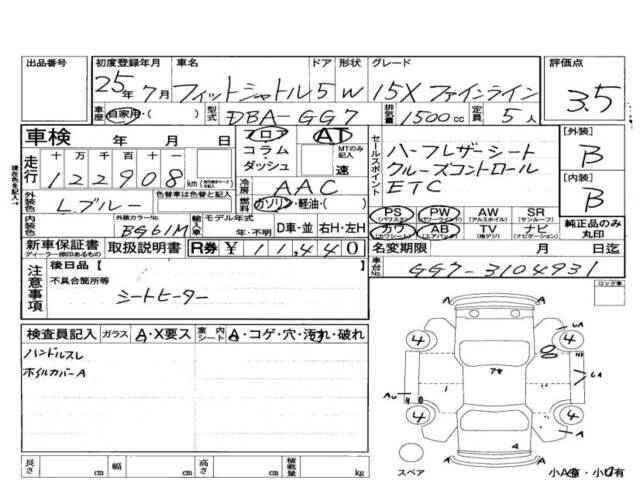 出品番号 初度登録年月 車名 ドア 形状 グレード 評価点
25年7月 フィットシャトル 5 W 15X ファインライン 3.5
車歴 自家用・( ) 型式 DBA-GG7 排気量 1500cc 定員 5人
車検 年 月 日 フロア コラム ダッシュ AT MTのみ記入 速
セールスポイント
ハーフレザーシート
クルーズコントロール
ETC
[外装] B
[内装] B
走行 十万千百十一
122908 km
冷房 AAC
外装色 色替車は色替と記入 L.ブルー
燃料 ガソリン・軽油・( )
内装色 外装カラーNo. BG61M 輸入車 モデル年式 年・不明 D車・並 右H・左H
PS (パワステ) PW (パワーウインド) AW (アルミホイル) SR (サンルーフ)
カワ (カワシート) AB (エアバッグ) TV (地デジ) ナビ (ナビゲーション)
純正品のみ丸印
新車保証書 ディーラー捺印あるもの 取扱説明書 R券 ¥11,440
名変期限 月 日迄
車台No. GG7-3104931
注意事項
後日品 [
不具合箇所等
シートヒーター
ロック車
検査員記入 ガラス A・X要ス 室内シート A・コゲ・穴・汚れ・破れ
ハンドルスレ
ホイルカバーA
4 4 4 4
スペア
小A有・小U有
長さ cm 幅 cm 高さ cm 積載量 kg
現在色を記入→